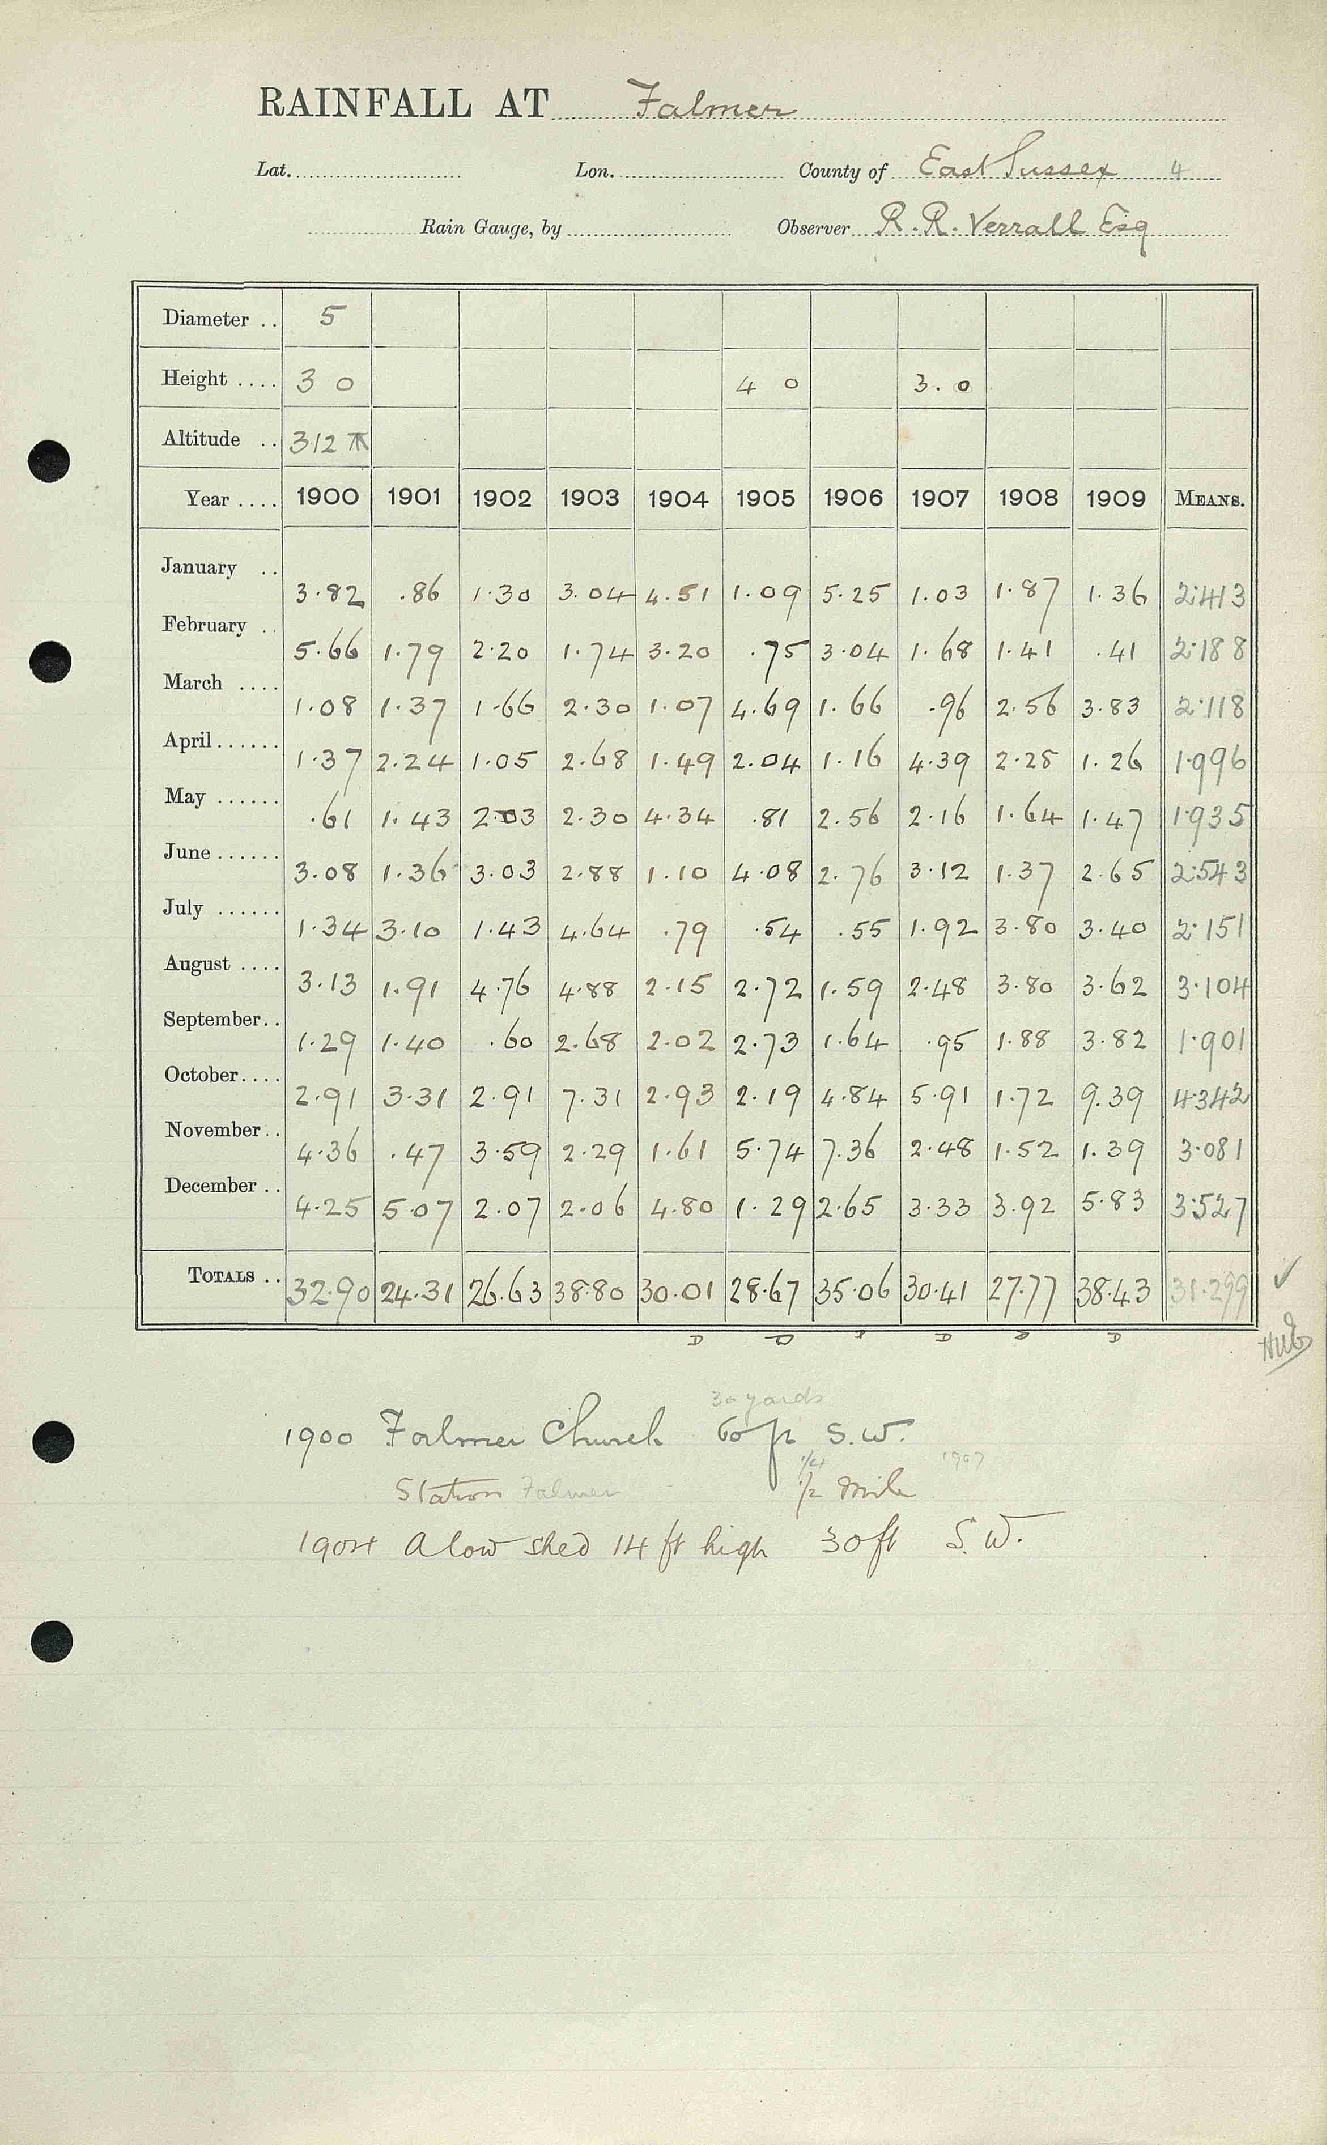 RAINFALL AT Falmer
Lat. Lon. County of East Sussex 4
Rain Gauge, by Observer R. R. Verrall Esq
Diameter .. 5
Height .... 3 0 4 0 3. 0
Altitude .. 312
Year .... 1900 1901 1902 1903 1904 1905 1906 1907 1908 1909 MEANS.
January .. 3.82 .86 1.30 3.04 4.51 1.09 5.25 1.03 1.87 1.36 2.413
February .. 5.66 1.79 2.20 1.74 3.20 .75 3.04 1.68 1.41 .41 2.188
March .... 1.08 1.37 1.66 2.30 1.07 4.69 1.66 .96 2.56 3.83 2.118
April...... 1.37 2.24 1.05 2.68 1.49 2.04 1.16 4.39 2.28 1.26 1.996
May ...... .61 1.43 2.03 2.30 4.34 .81 2.56 2.16 1.64 1.47 1.935
June...... 3.08 1.36 3.03 2.88 1.10 4.08 2.76 3.12 1.37 2.65 2.543
July ...... 1.34 3.10 1.43 4.64 .79 .54 .55 1.92 3.80 3.40 2.151
August .... 3.13 1.91 4.76 4.88 2.15 2.72 1.59 2.48 3.80 3.62 3.104
September.. 1.29 1.40 .60 2.68 2.02 2.73 1.64 .95 1.88 3.82 1.901
October.... 2.91 3.31 2.91 7.31 2.93 2.19 4.84 5.91 1.72 9.39 4.342
November.. 4.36 .47 3.59 2.29 1.61 5.74 7.36 2.48 1.52 1.39 3.081
December .. 4.25 5.07 2.07 2.06 4.80 1.29 2.65 3.33 3.92 5.83 3.527
TOTALS .. 32.90 24.31 26.63 38.80 30.01 28.67 35.06 30.41 27.77 38.43 31.299
D D D D D
30 yards
1900 Falmer Church 60 ft S.W.
1/4 1907
Station Falmer 1/2 Mile
1904 A low shed 14 ft high 30 ft S.W.